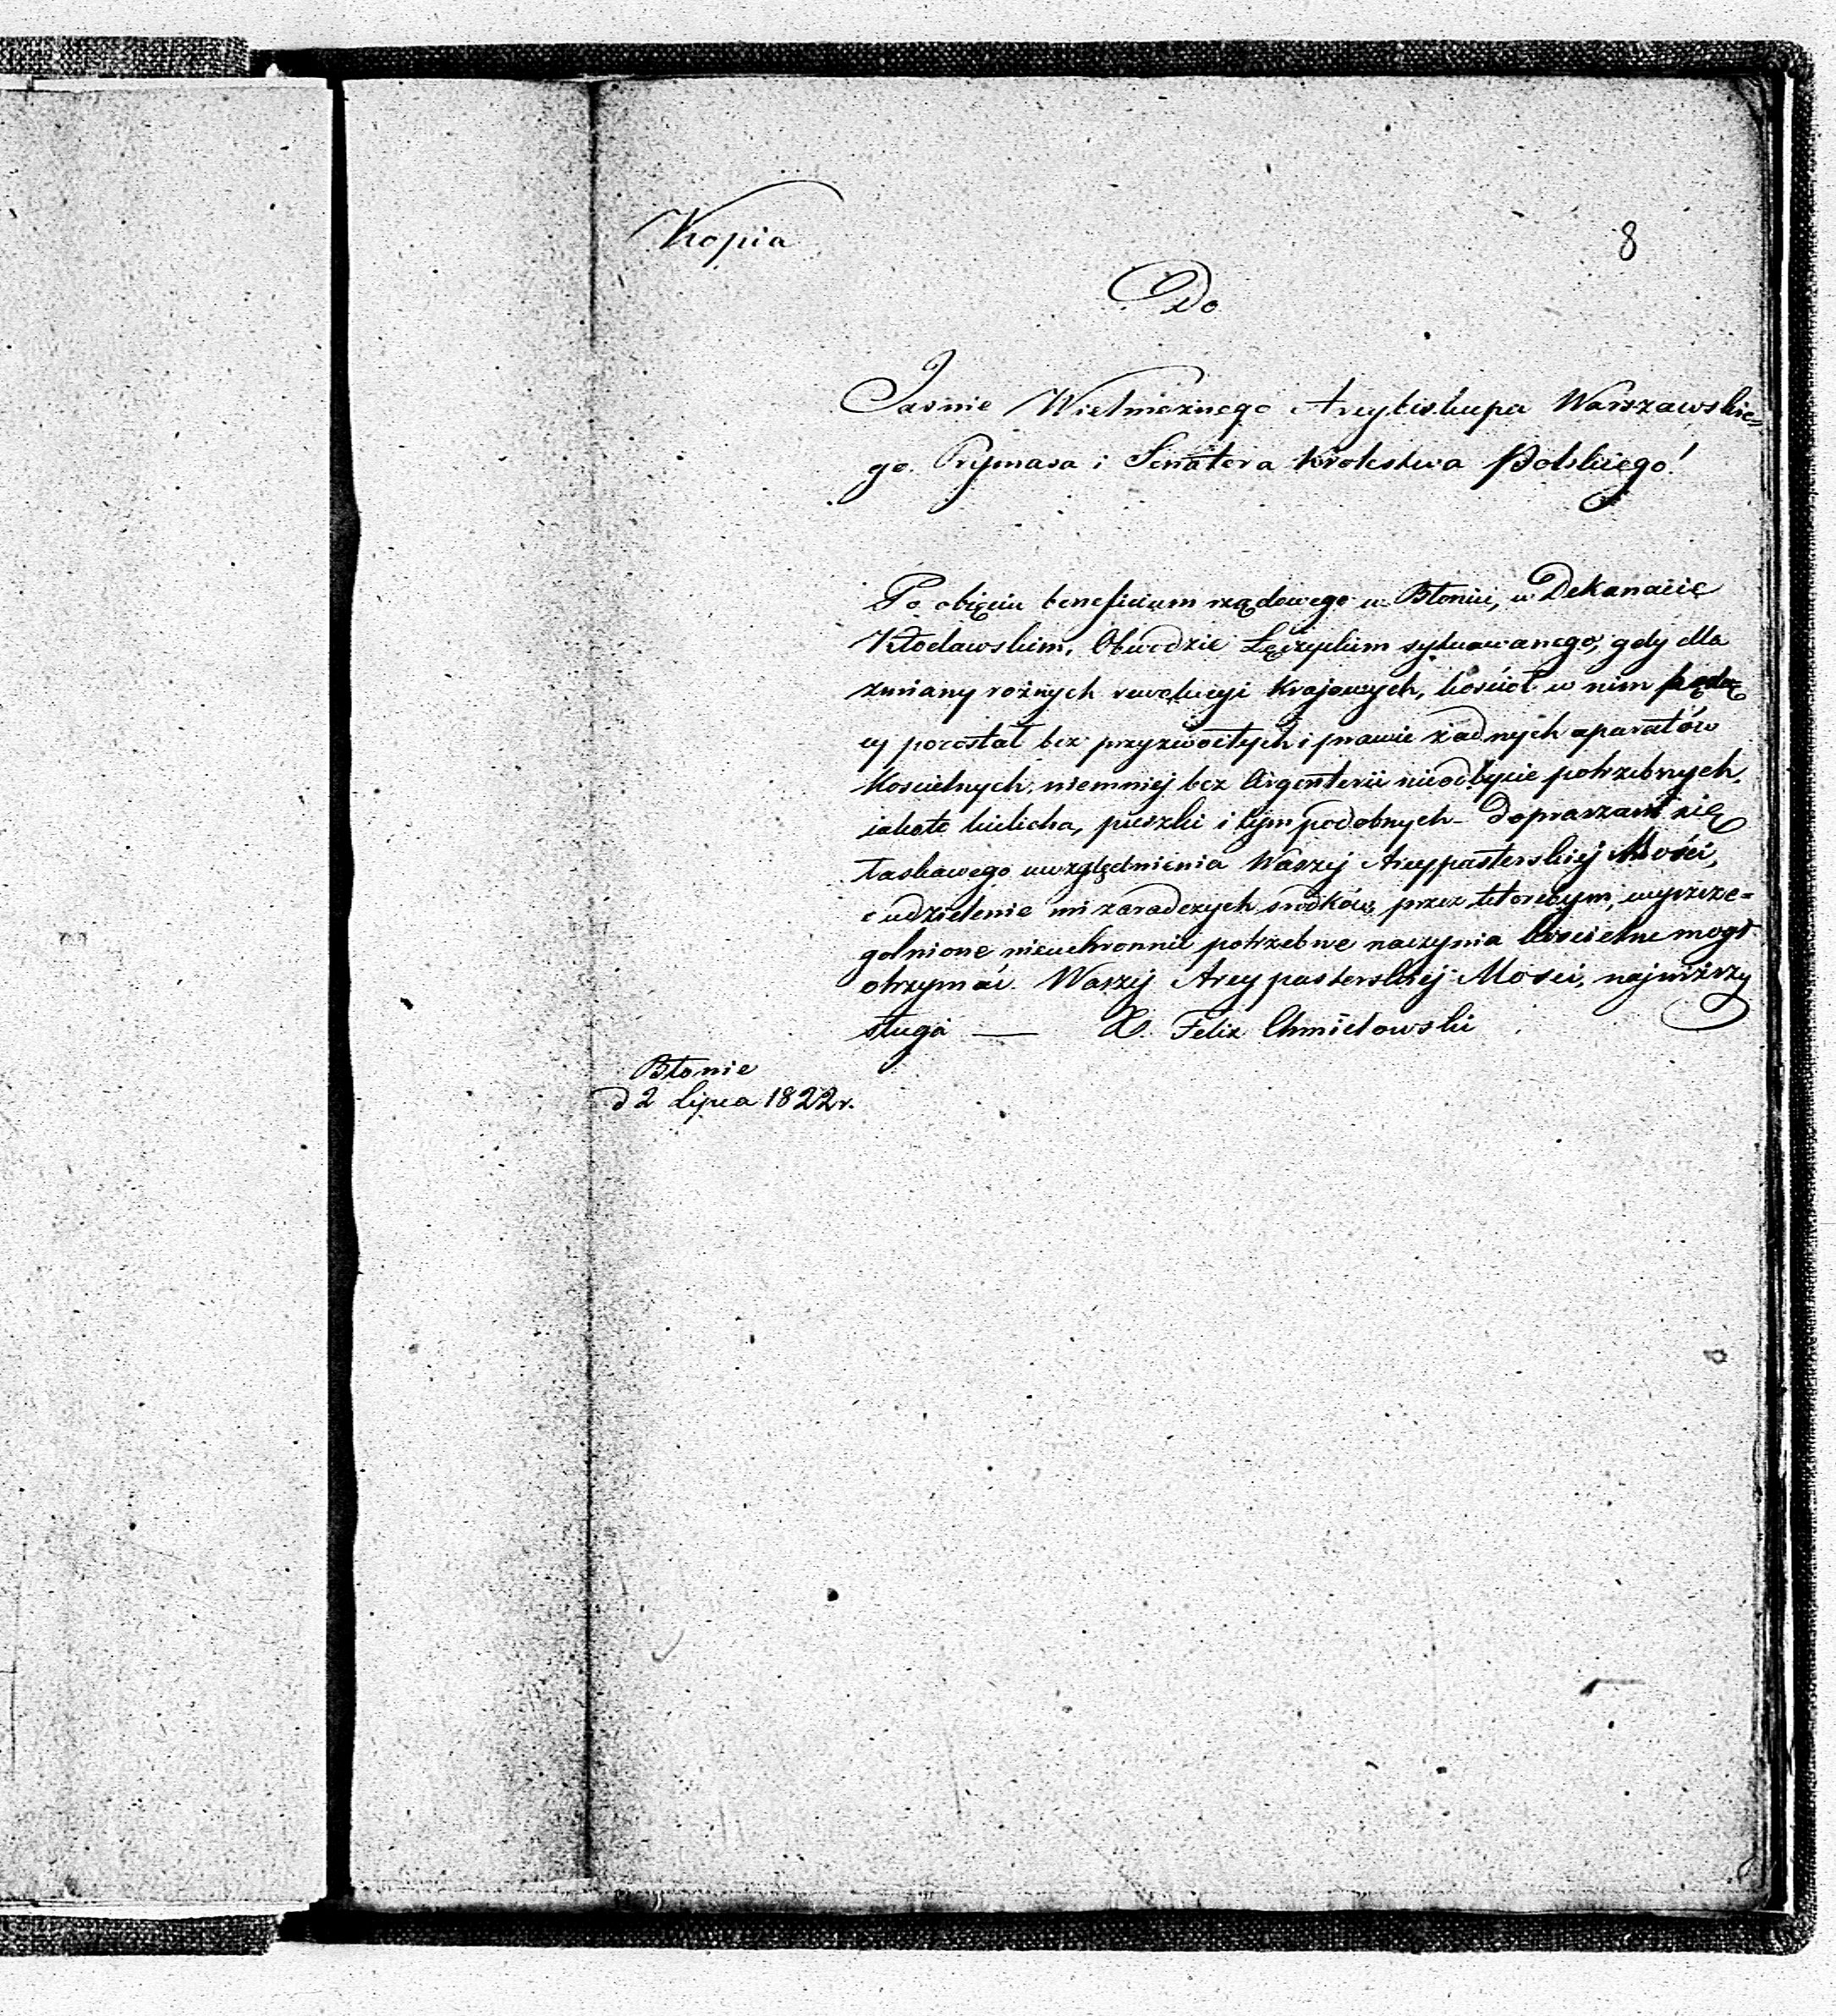 Kopia
8
Do
Jaśnie Wielmożnego Arcybiskupa Warszawskie„
go. Prymasa i Senatora Krolestwa Polskiego!
Po obięciu beneficium rządowego w Błoniu, w Dekanacie
Kłodawskim, Obwodzie Łęczyckim sytuowanego, gdy dla
zmiany rożnych rewolucyi Krajowych, kościoł w nim będą
cy pozostał bez przyzwoitych i prawie żadnych aparatów
Koscielnych, niemniej bez Argenterii nieodbycie potrzebnych,
iakoto kielicha, puszki i tym podobnych - Dopraszam się
łaskawego uwzględnienia Waszej Arcypasterskiej Mości,
o udzielenie mi zaradczych srodków, przez ktorebym, wyszcze=
golnione nieuchronnie potrzebne naczynia kościelne mogł
otrzymać. Waszej Arcypasterskiej Mosci, najniższy
sługa — X. Felix Chmielowski
Błonie
d 2 Lipca 1822 r.